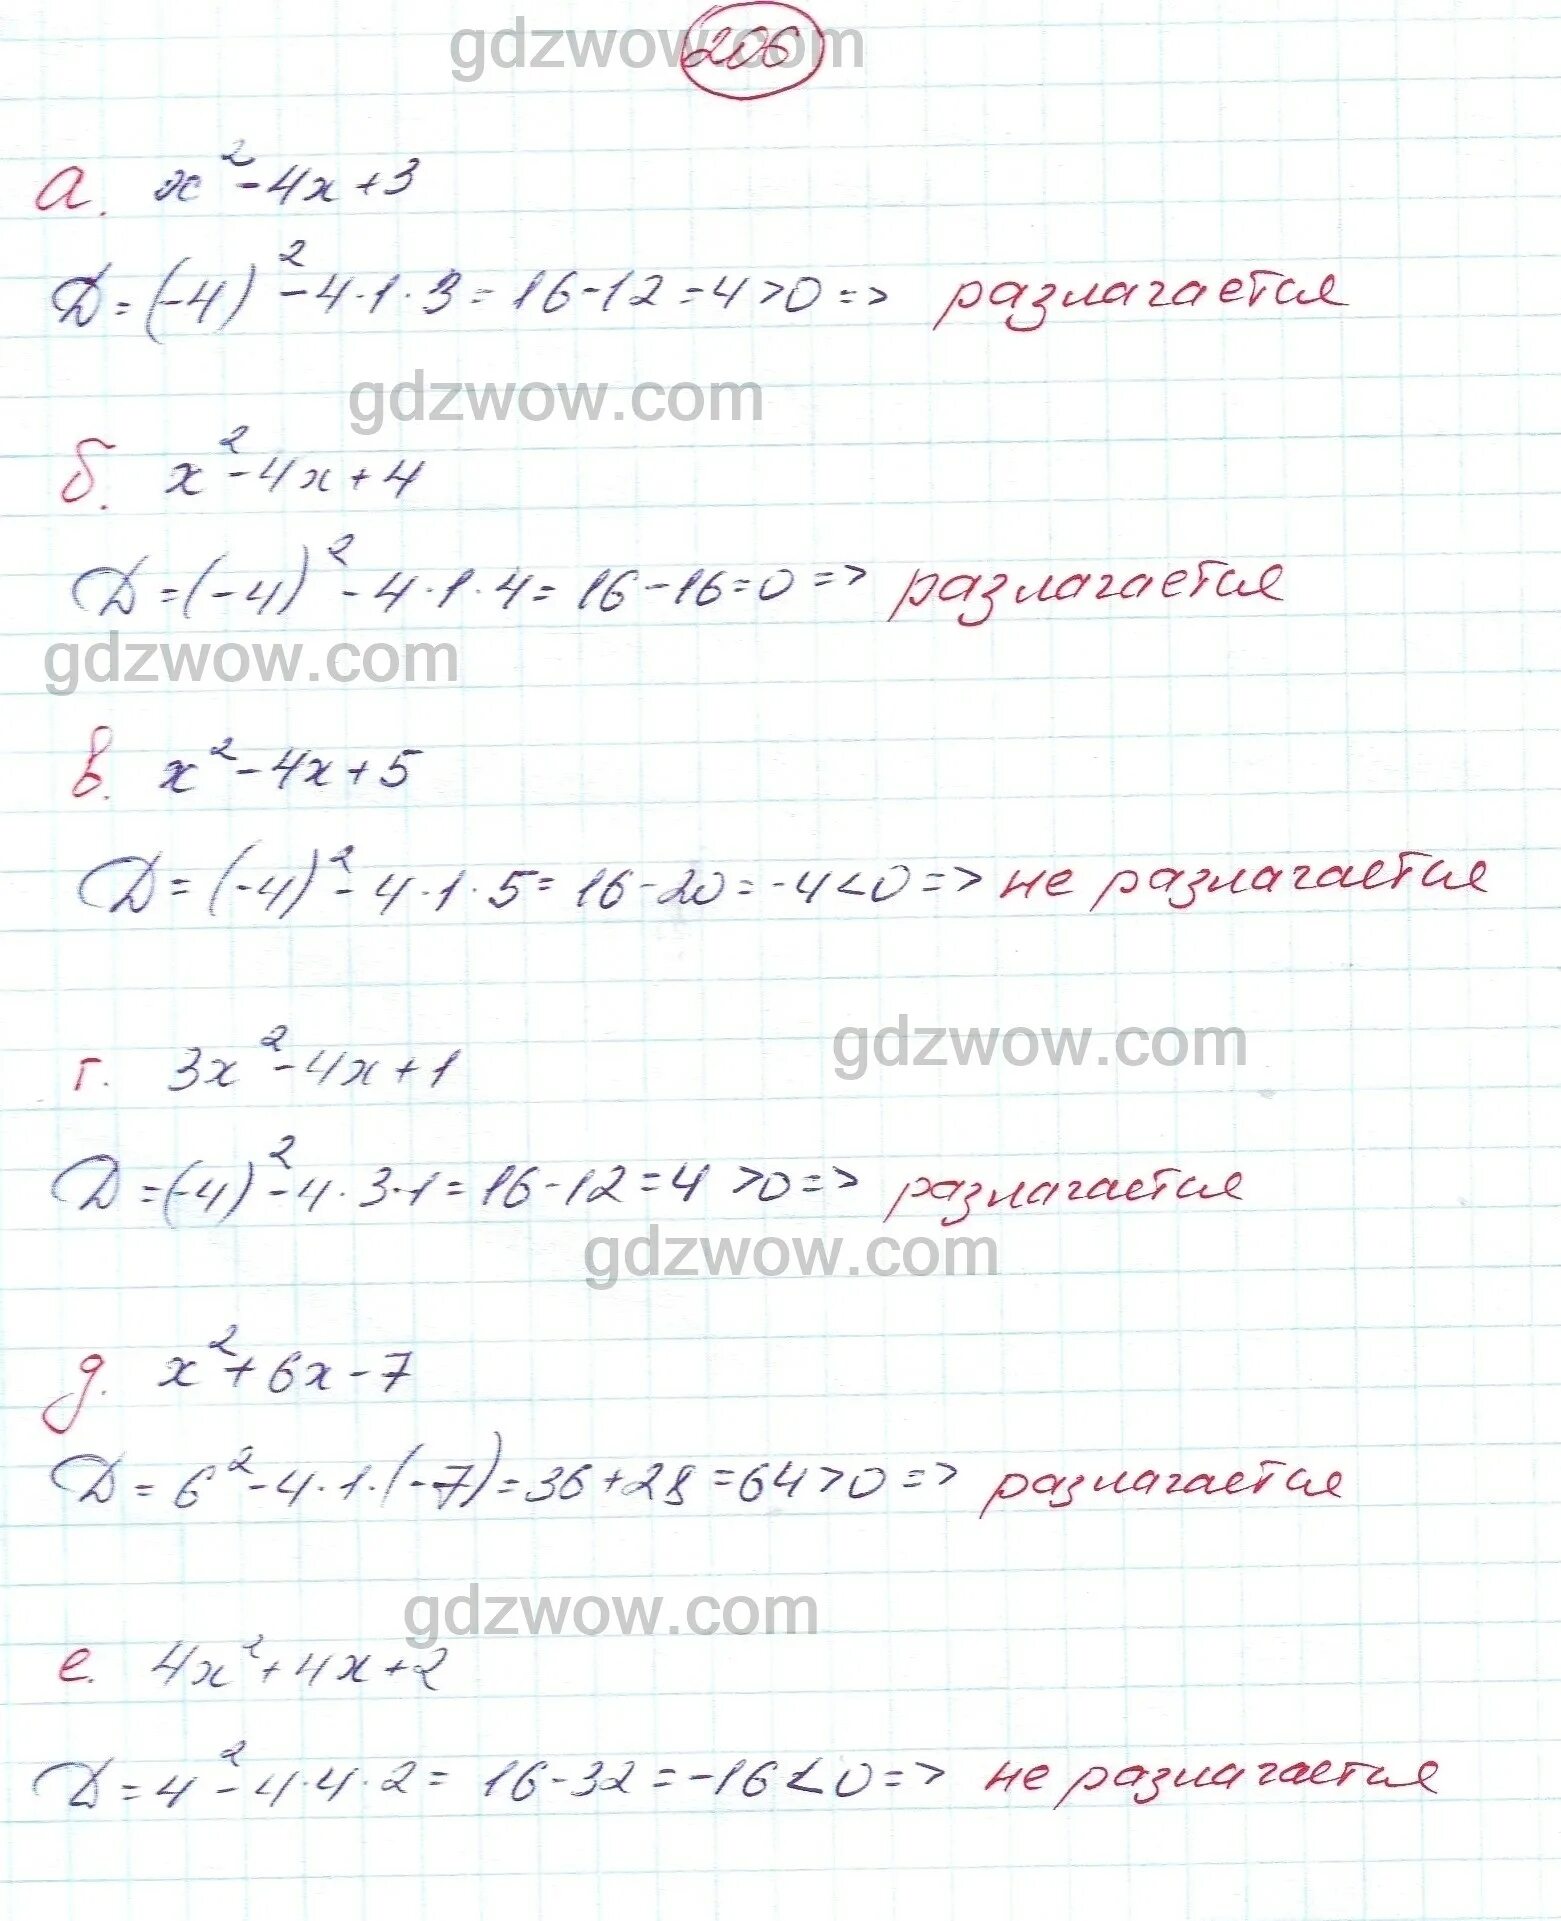 gdzwow.com
206
а. x²-4x+3
D=(-4)²-4·1·3=16-12=4>0=> разлагается
gdzwow.com
б. x²-4x+4
D=(-4)²-4·1·4=16-16=0=> разлагается
gdzwow.com
в. x²-4x+5
D=(-4)²-4·1·5=16-20=-4<0=> не разлагается
gdzwow.com
г. 3x²-4x+1
D=(-4)²-4·3·1=16-12=4>0=> разлагается
gdzwow.com
д. x²+6x-7
D=6²-4·1·(-7)=36+28=64>0=> разлагается
gdzwow.com
е. 4x²+4x+2
D=4²-4·4·2=16-32=-16<0=> не разлагается